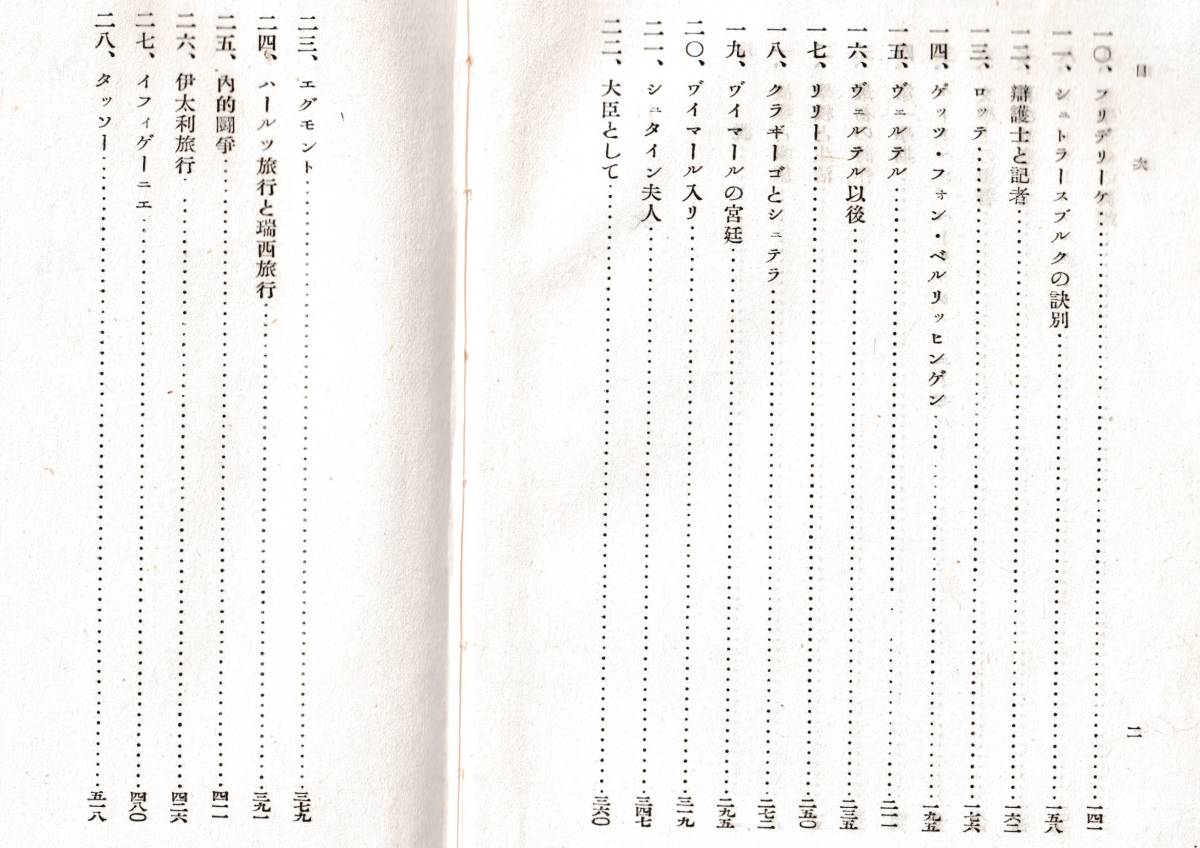 目次
二
一〇、フリデリーケ……一四一
一一、シュトラースブルクの訣別……一五八
一二、辯護士と記者……一六二
一三、ロッテ……一七六
一四、ゲッツ・フォン・ベルリッヒンゲン……一九五
一五、ヴェルテル……二一一
一六、ヴェルテル以後……二三五
一七、リリー……二五〇
一八、クラギーゴとシュテラ……二七二
一九、ヷイマールの宮廷……二九五
二〇、ヷイマール入リ……三一九
二一、シュタイン夫人……三四七
二二、大臣として……三六〇
二三、エグモント……三七九
二四、ハールツ旅行と瑞西旅行……三九一
二五、內的鬪爭……四一一
二六、伊太利旅行……四二六
二七、イフィゲーニエ……四八〇
二八、タッソー……五一八